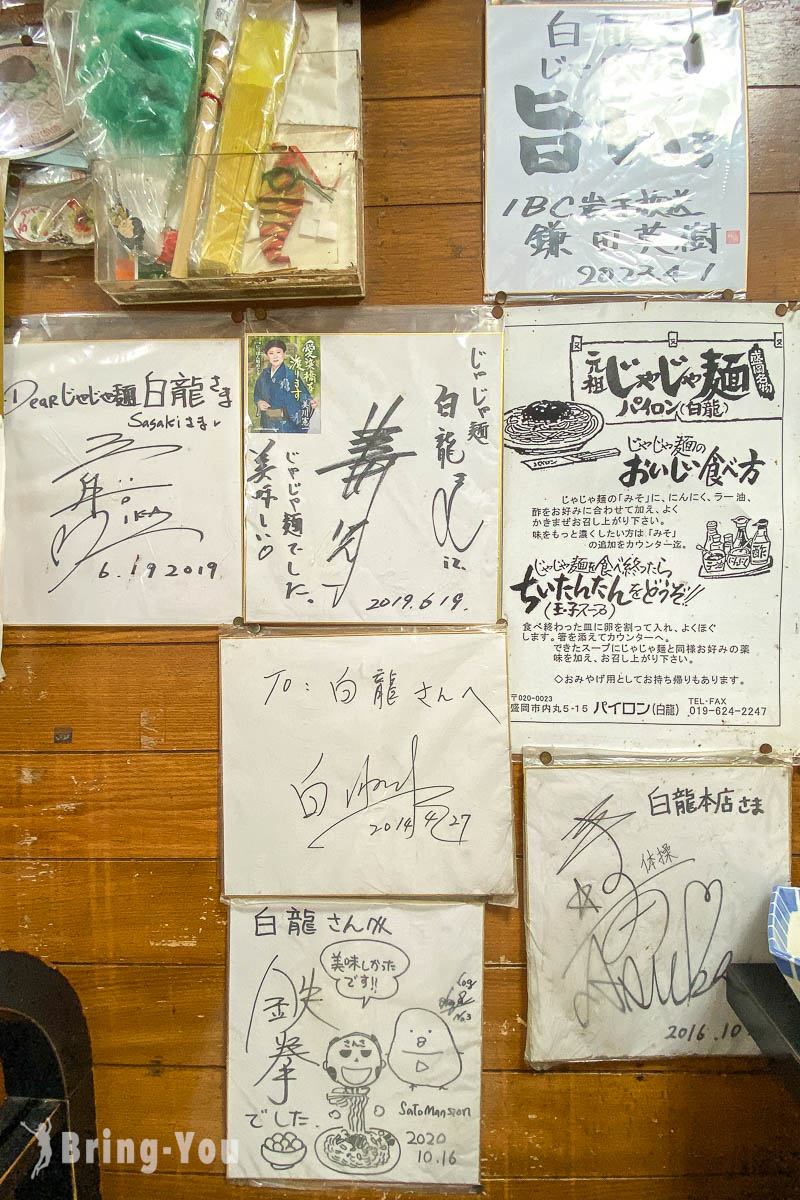 白龍
じゃじゃ
旨
IBC岩手放送
鎌田英樹
2023.4.1
Dearじゃじゃ麺 白龍さま
Sasakiさま
6.19 2019
愛染橋を
渡ります
美川憲一
じゃじゃ麺
白龍さん
江
じゃじゃ麺でした。
美味しい
2019.6.19.
元祖
じゃじゃ麺
盛岡名物
パイロン(白龍)
パイロン
じゃじゃ麺の
おいしい食べ方
じゃじゃ麺の「みそ」に、にんにく、ラー油、
酢をお好みに合わせて加え、よく
かきまぜお召し上がり下さい。
味をもっと濃くしたい方は「みそ」
の追加をカウンター迄。
酢
じゃじゃ麺を食べ終ったら
ちいたんたんをどうぞ!!
(玉子スープ)
食べ終わった皿に卵を割って入れ、よくほぐ
します。箸を添えてカウンターへ。
できたスープにじゃじゃ麺と同様お好みの薬
味を加え、お召し上がり下さい。
◇おみやげ用としてお持ち帰りもあります。
〒020-0023
盛岡市内丸5-15 パイロン(白龍)
TEL・FAX
019-624-2247
To:白龍さんへ
2014 4/27
白龍本店さま
体操
Asuka
2016.10
白龍さん江
美味しかった
です!!
鉄拳
でした.
さんさ
SatoMansion
2020
10.16
Bring-You